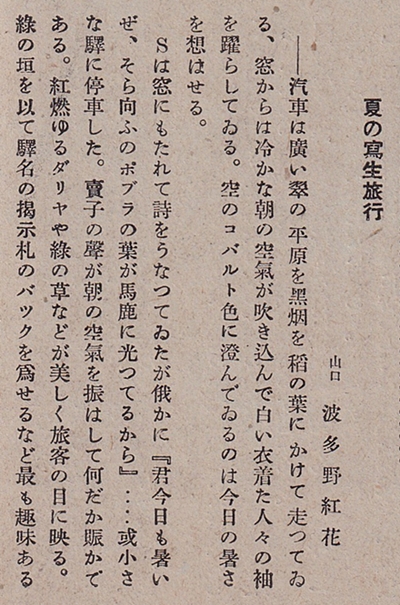 夏の寫生旅行
山口 波多野紅花
――汽車は廣い翠の平原を黑烟を稻の葉にかけて走つてゐ
る、窓からは冷かな朝の空氣が吹き込んで白い衣着た人々の袖
を躍らしてゐる。空のコバルト色に澄んでゐるのは今日の暑さ
を想はせる。
Sは窓にもたれて詩をうなつてゐたが俄かに『君今日も暑い
ぜ、そら向ふのポプラの葉が馬鹿に光つてるから』‥‥或小さ
な驛に停車した。賣子の聲が朝の空氣を振はして何だか賑かで
ある。紅燃ゆるダリヤや綠の草などが美しく旅客の目に映る。
綠の垣を以て驛名の揭示札のバツクを爲せるなど最も趣味ある